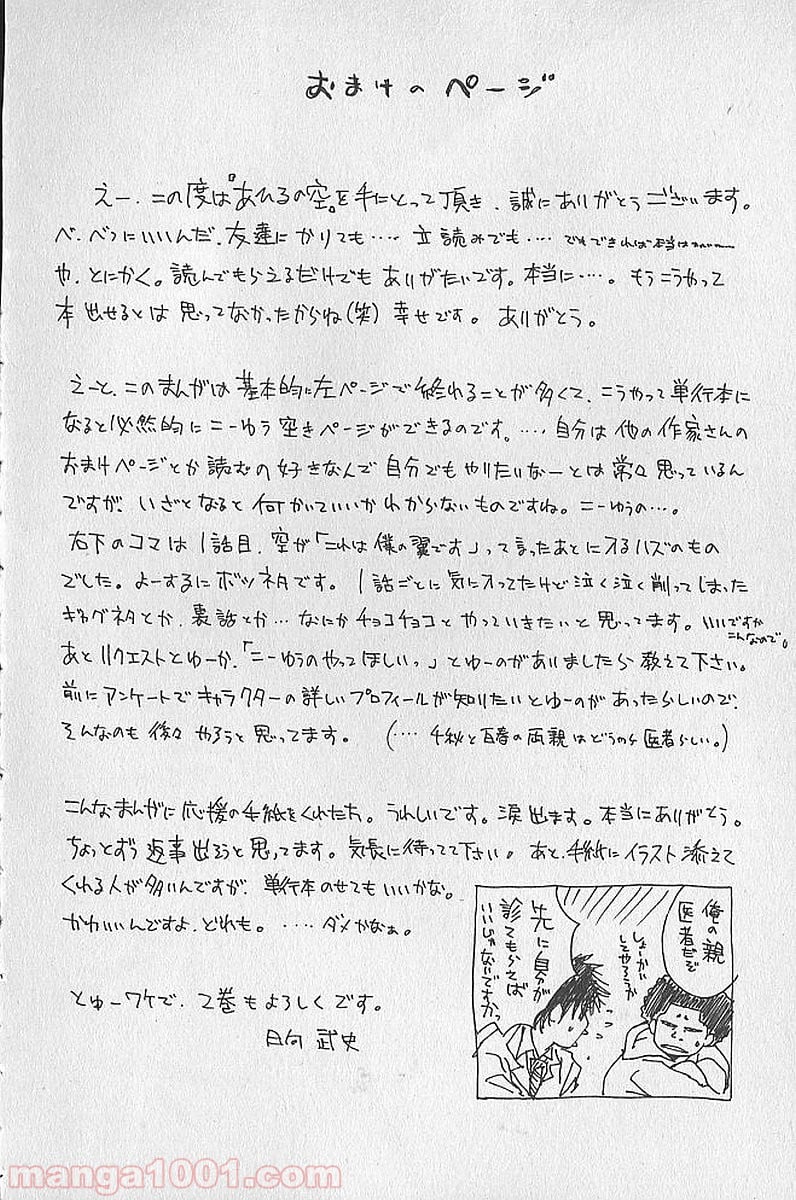 おまけの ページ
えー、この度は『あひるの空』を手にとって頂き、誠にありがとうございます。
べ、べつにいいんだ、友達にかりても‥‥ 立読みでも‥‥ でもできれば本当は
や、とにかく。読んでもらえるだけでも ありがたいです。本当に‥‥。もうこうやって
本 出せるとは 思ってなかったからね(笑) 幸せです。 ありがとう。
えーと、このまんがは 基本的に左ページで終わることが多くて、こうやって単行本に
なると必然的にこーゆう空きページができるのです。‥‥自分は他の作家さんの
おまけページとか 読むの 好きなんで 自分でもやりたいなーとは 常々 思っているん
ですが、いざとなると 何かいていいか わからないものですね。こーゆうの‥‥。
右下のコマは 1話目、空が「これは僕の翼です」って言ったあとに入るハズのもの
でした。よーするにボツネタです。1話ごとに気に入ってたけど泣く泣く削ってしまった
ギャグネタとか、裏話とか‥ なにかチョコチョコとやっていきたいと思ってます。いいですか
こんなので。
あとリクエストとゆーか、「こーゆうのやってほしいっ」とゆーのがありましたら 教えて下さい。
前にアンケートでキャラクターの詳しいプロフィールが知りたいとゆーのがあったらしいので、
そんなのも 後々 やろうと思ってます。 (‥‥千秋と百春の両親はどうやら医者らしい。)
こんなまんがに応援の手紙をくれた方々。うれしいです。涙出ます。本当にありがとう。
ちょっとずつ返事出そうと思ってます。気長に待ってて下さい。あと、手紙にイラスト添えて
くれる人が多いんですが、単行本のせてもいいかな。
かわいいんですよ、どれも。‥‥ダメかなぁ。
とゆーワケで、2巻もよろしくです。
日向 武史
俺の親
医者だぞ
しょーかい
してやろうか
先に自分が
診てもらえば
いいじゃないですかっ
manga1001.com